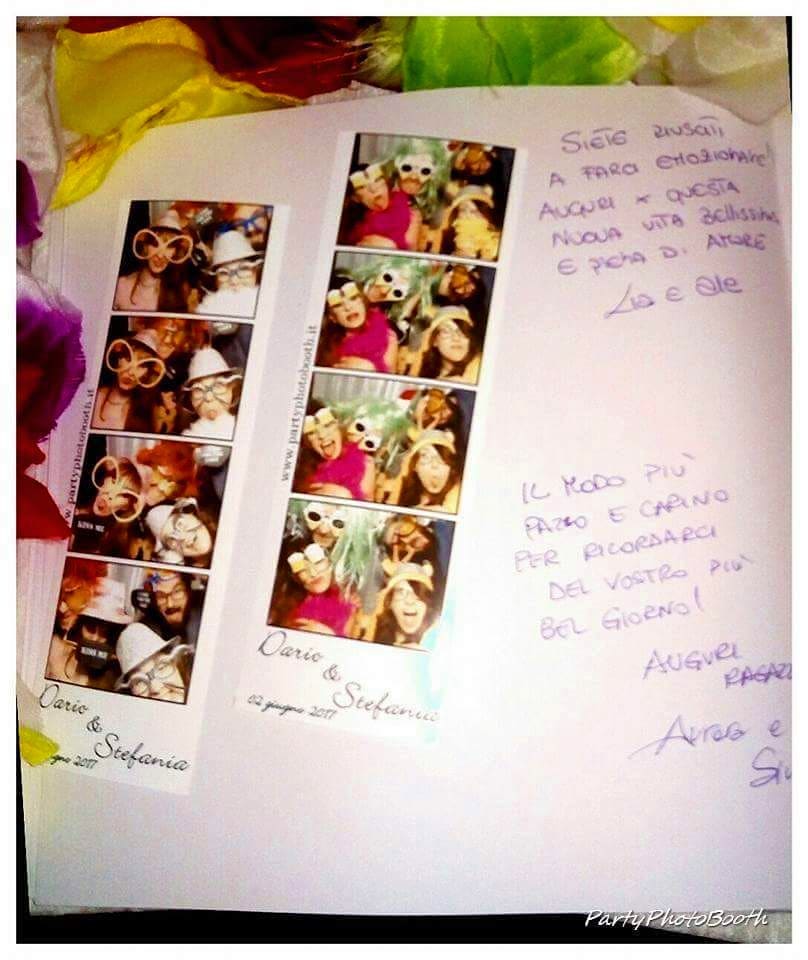 www.partyphotobooth.it
KISS ME
KISS ME
Dario
&
Stefania
2017
www.partyphotobooth.it
Dario
&
Stefania
02 giugno 2017
SIETE RIUSCITI
A FARCI EMOZIONARE!
AUGURI X QUESTA
NUOVA VITA BELLISSIMA
E PIENA DI AMORE
E
IL MODO PIÙ
PAZZO E CARINO
PER RICORDARCI
DEL VOSTRO PIÙ
BEL GIORNO!
AUGURI
RAGAZZ
E
PartyPhotoBooth